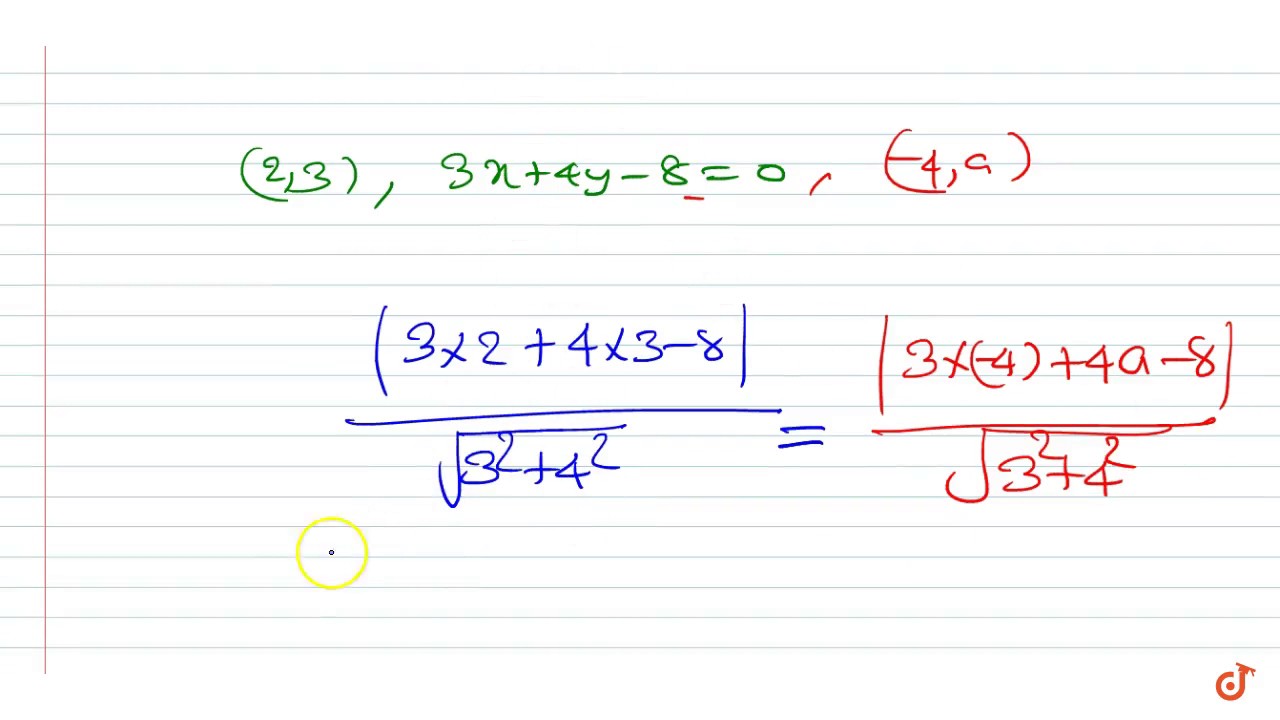 (2,3), 3x+4y-8=0, (-4,a)
|3×2+4×3-8| / √3²+4² = |3×(-4)+4a-8| / √3²+4²